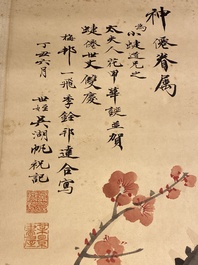 神僊眷属
為小蜨道兄之
太夫人花甲華誕並賀
蜨僊世丈雙慶
梅邨一飛李銓祁達合寫
丁丑六月
世姪吳湖帆祝記